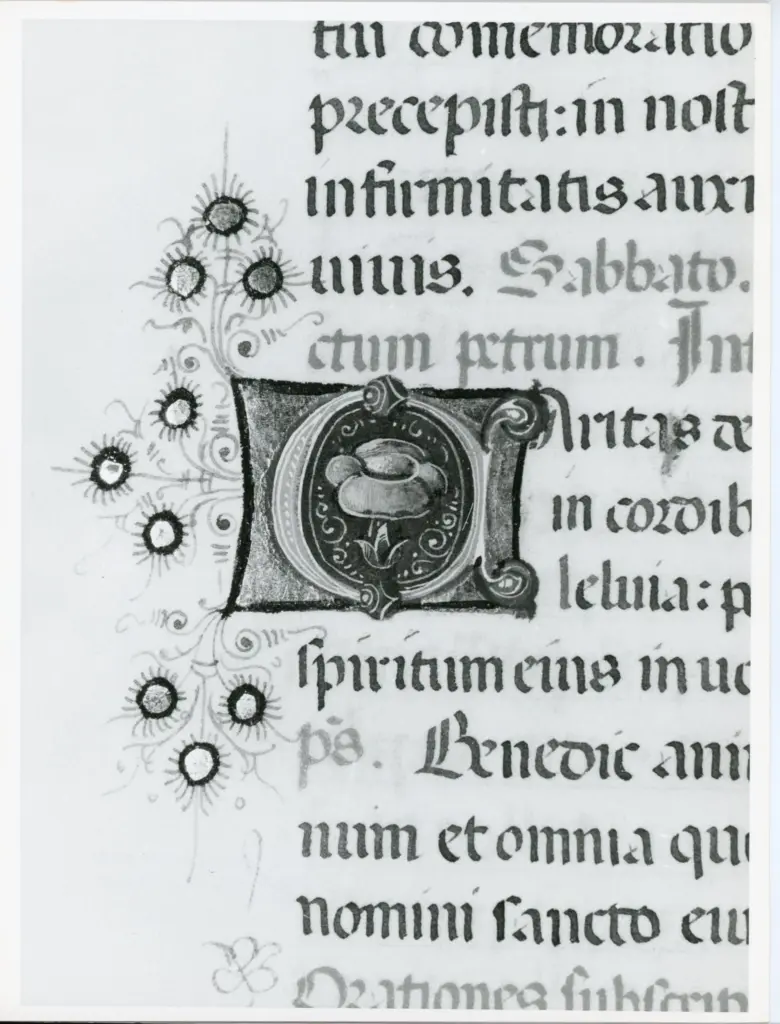 tui comemoratio
precepisti: in nost
infirmitatis auxi
uiuis. Sabbato.
ctum petrum. Int
Caritas de
in cordib
leluia: p
spiritum eius in uo
ps. Benedic ani
num et omnia que
nomini sancto eiu
Orationes subscrip